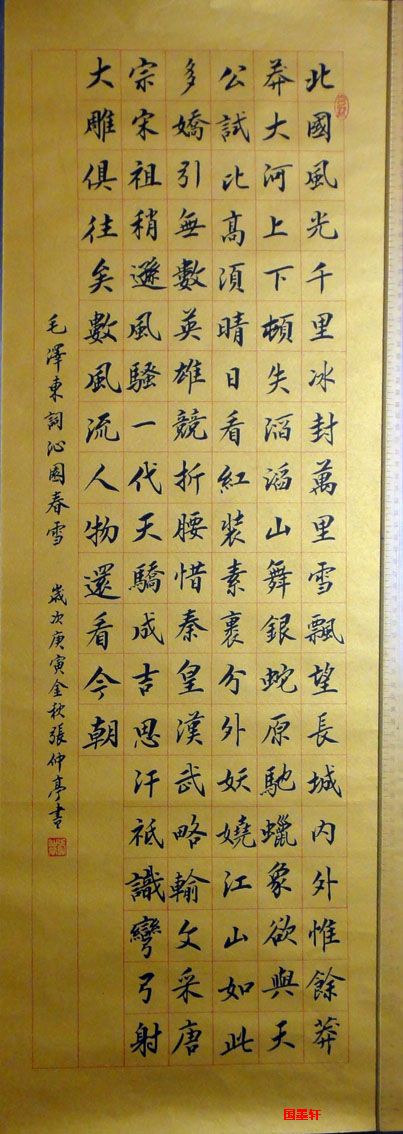 北國風光千里冰封萬里雪飄望長城内外惟餘莽
莽大河上下頓失滔滔山舞銀蛇原馳蠟象欲與天
公試比高須晴日看紅裝素裹分外妖嬈江山如此
多嬌引無數英雄競折腰惜秦皇漢武略輸文采唐
宗宋祖稍遜風騷一代天驕成吉思汗祗識彎弓射
大雕俱往矣數風流人物還看今朝
毛澤東詞沁園春雪 歲次庚寅金秋張仲亭書
国墨轩